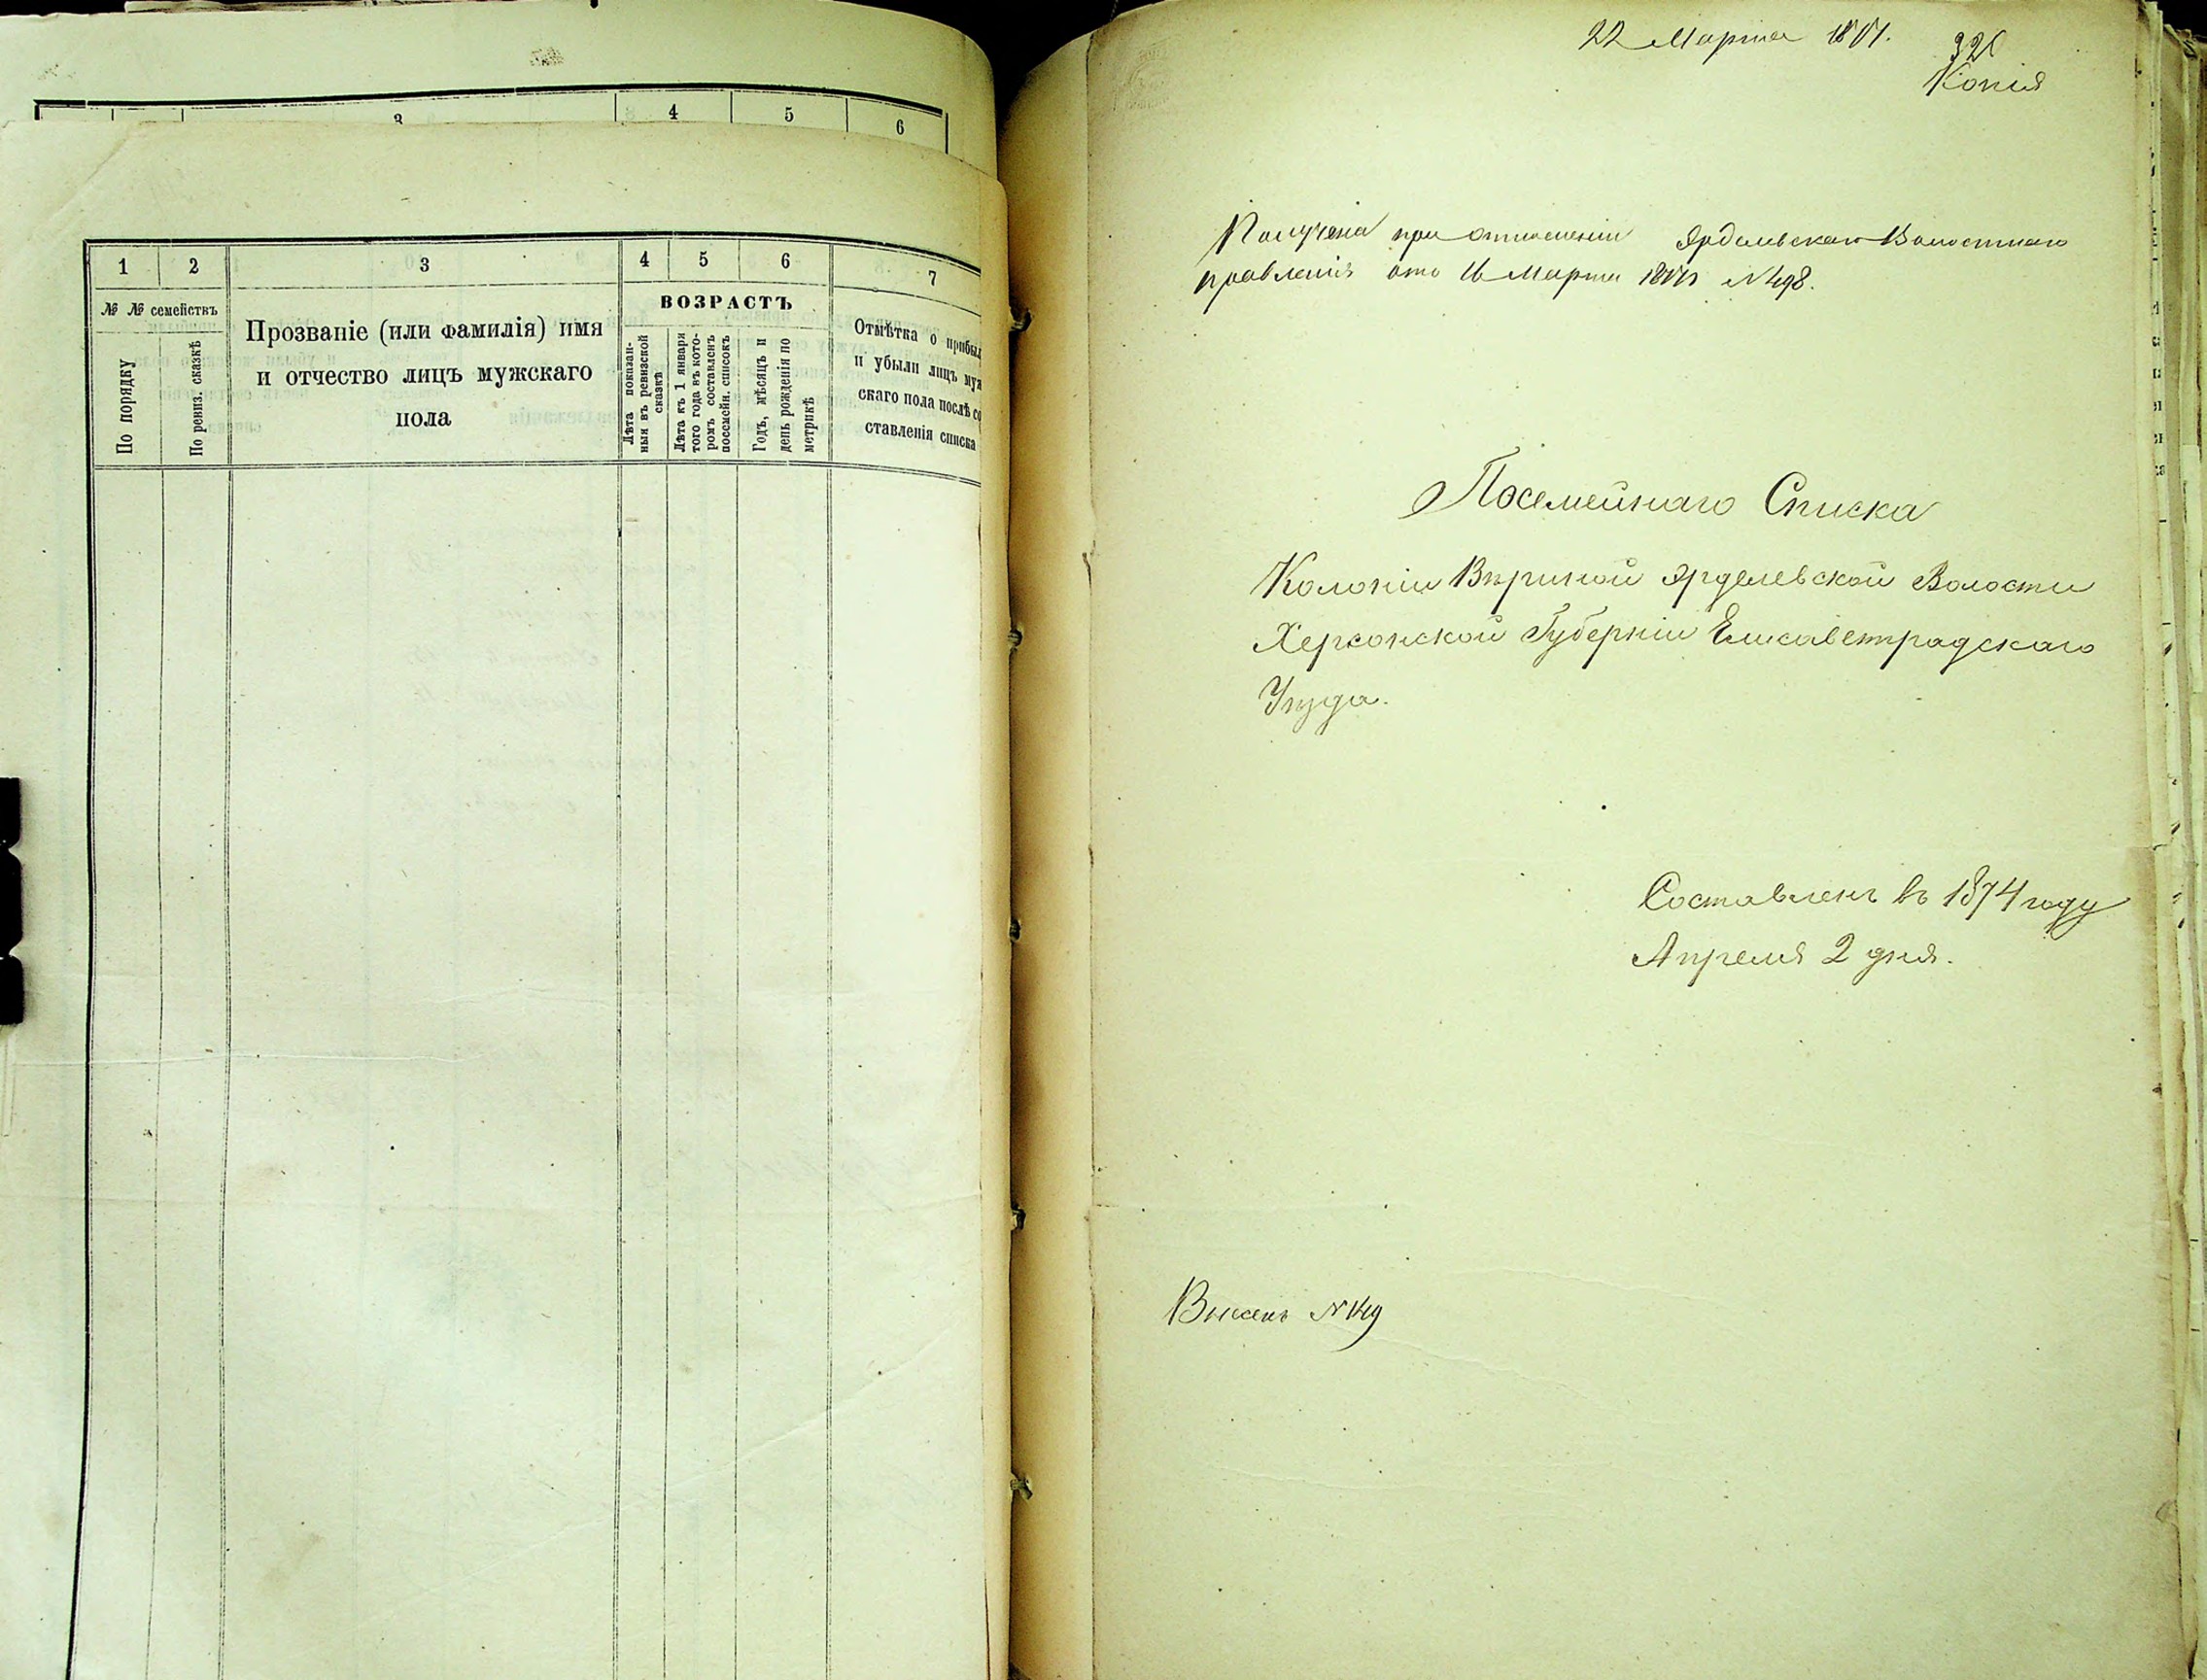 3 4 5 6
1 2 3 4 5 6 7
№ № семействъ
По порядку
По ревиз. сказкѣ
Прозваніе (или фамилія) имя
и отчество лицъ мужскаго
пола
ВОЗРАСТЪ
Лѣта показан-
ныя въ ревизской
сказкѣ
Лѣта къ 1 января
того года въ кото-
ромъ составленъ
посемейн. списокъ
Годъ, мѣсяцъ и
день рожденія по
метрикѣ
Отмѣтка о прибыл
и убыли лицъ муж
скаго пола послѣ со
ставленія списка
22 Марта
Копія
Получена при отношеніи Арделевскаго Волостнаго
правленія отъ 16 Марта № 498.
Посемейнаго Списка
Колоніи Вѣриной Арделевской Волости
Херсонской Губерніи Елисаветградскаго
Уѣзда.
Составленъ въ 1874 году
Апреля 2 дня.